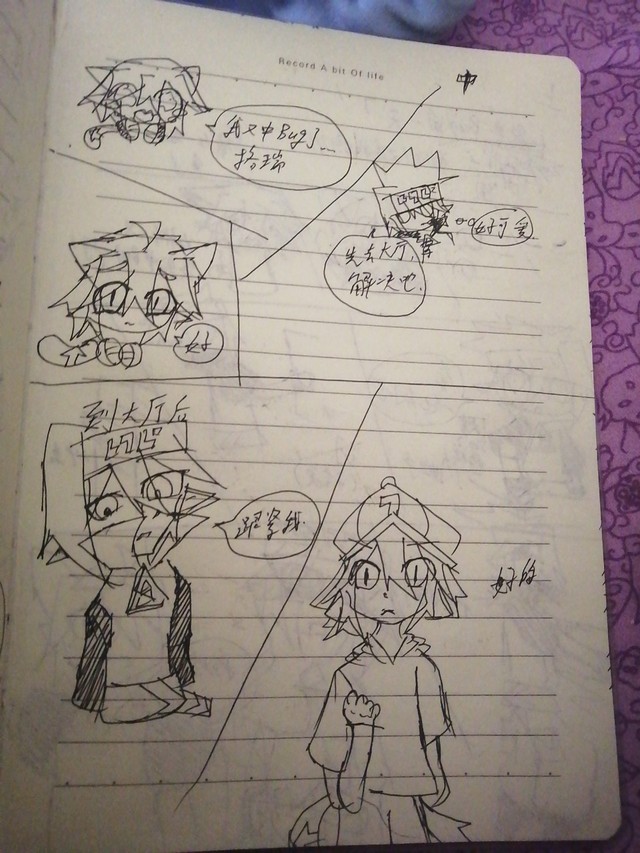 Record A bit Of life
中
我又中Bug了...
格瑞
好可爱
先去大厅,
解决吧.
好
到大厅后
跟紧我.
好的